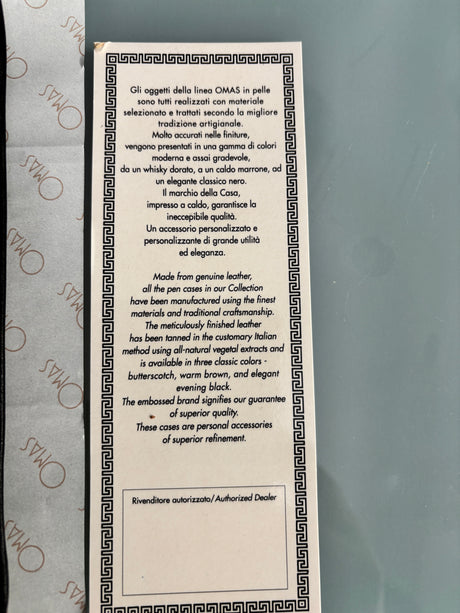 Gli oggetti della linea OMAS in pelle
sono tutti realizzati con materiale
selezionato e trattati secondo la migliore
tradizione artigianale.
Molto accurati nelle finiture,
vengono presentati in una gamma di colori
moderna e assai gradevole,
da un whisky dorato, a un caldo marrone, ad
un elegante classico nero.
Il marchio della Casa,
impresso a caldo, garantisce la
ineccepibile qualità.
Un accessorio personalizzato e
personalizzante di grande utilità
ed eleganza.
Made from genuine leather,
all the pen cases in our Collection
have been manufactured using the finest
materials and traditional craftsmanship.
The meticulously finished leather
has been tanned in the customary Italian
method using all-natural vegetal extracts and
is available in three classic colors -
butterscotch, warm brown, and elegant
evening black.
The embossed brand signifies our guarantee
of superior quality.
These cases are personal accessories
of superior refinement.
Rivenditore autorizzato/Authorized Dealer
OMAS
OMAS
OMAS
OMAS
OMAS
OMAS
OMAS